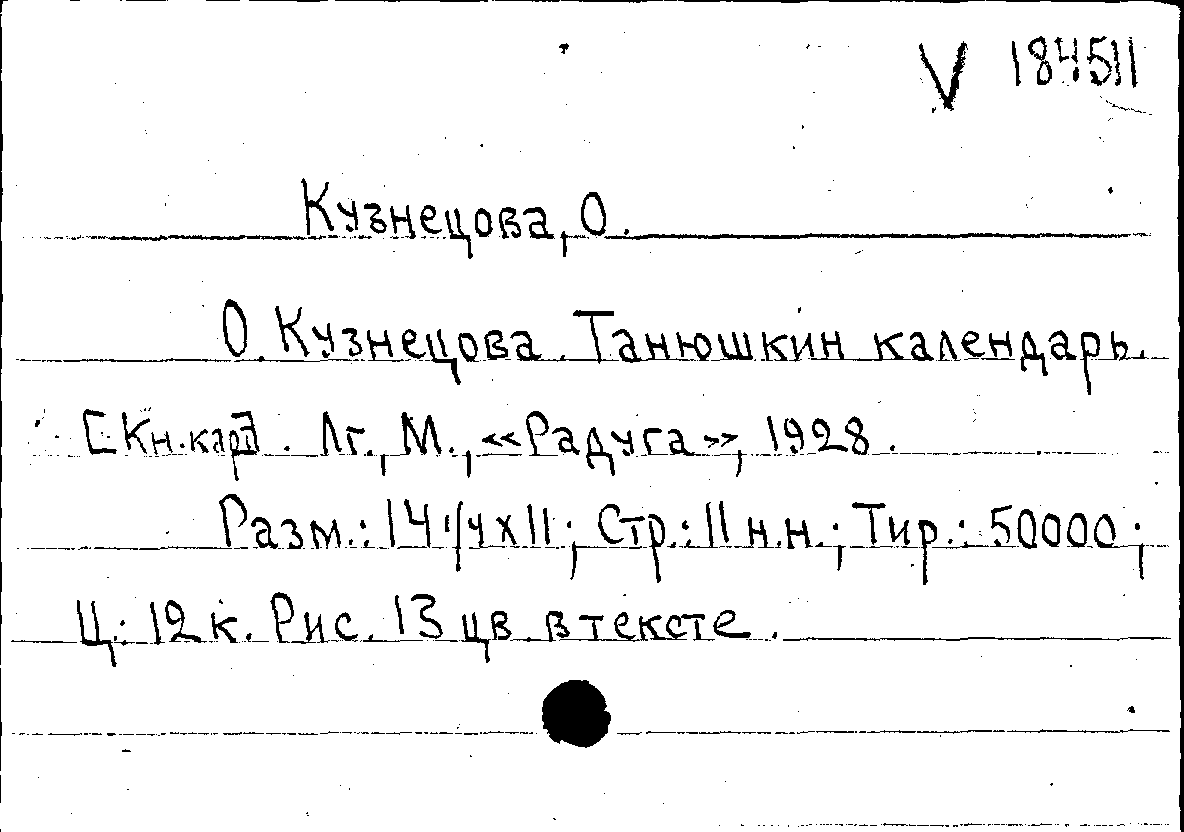 V 184511
Кузнецова, О.
О. Кузнецова. Танюшкин календарь.
[Кн.-карт]. Лг., М., «Радуга», 1928.
Разм.: 14 1/4 x 11; Стр.: 11 н.н.; Тир.: 50000;
Ц.: 12 к. Рис. 13 цв. в тексте.